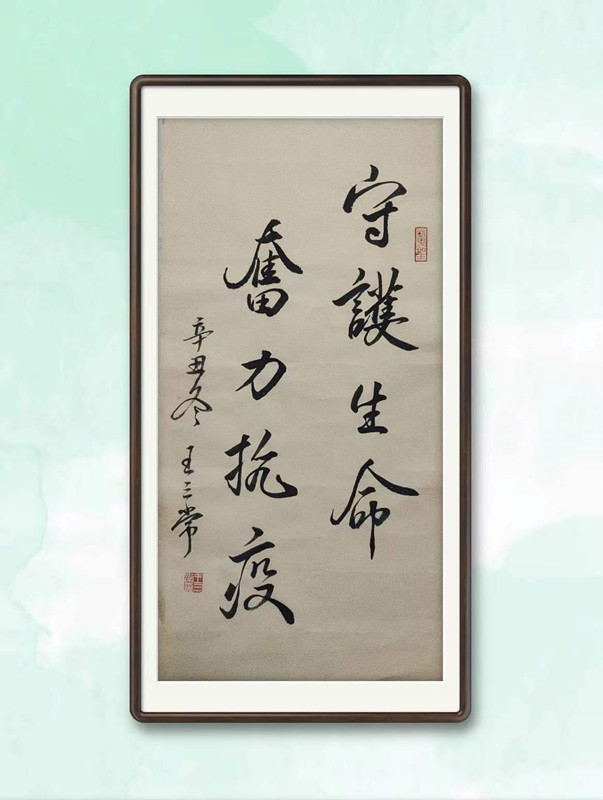 守護生命
奮力抗疫
辛丑冬 王三常